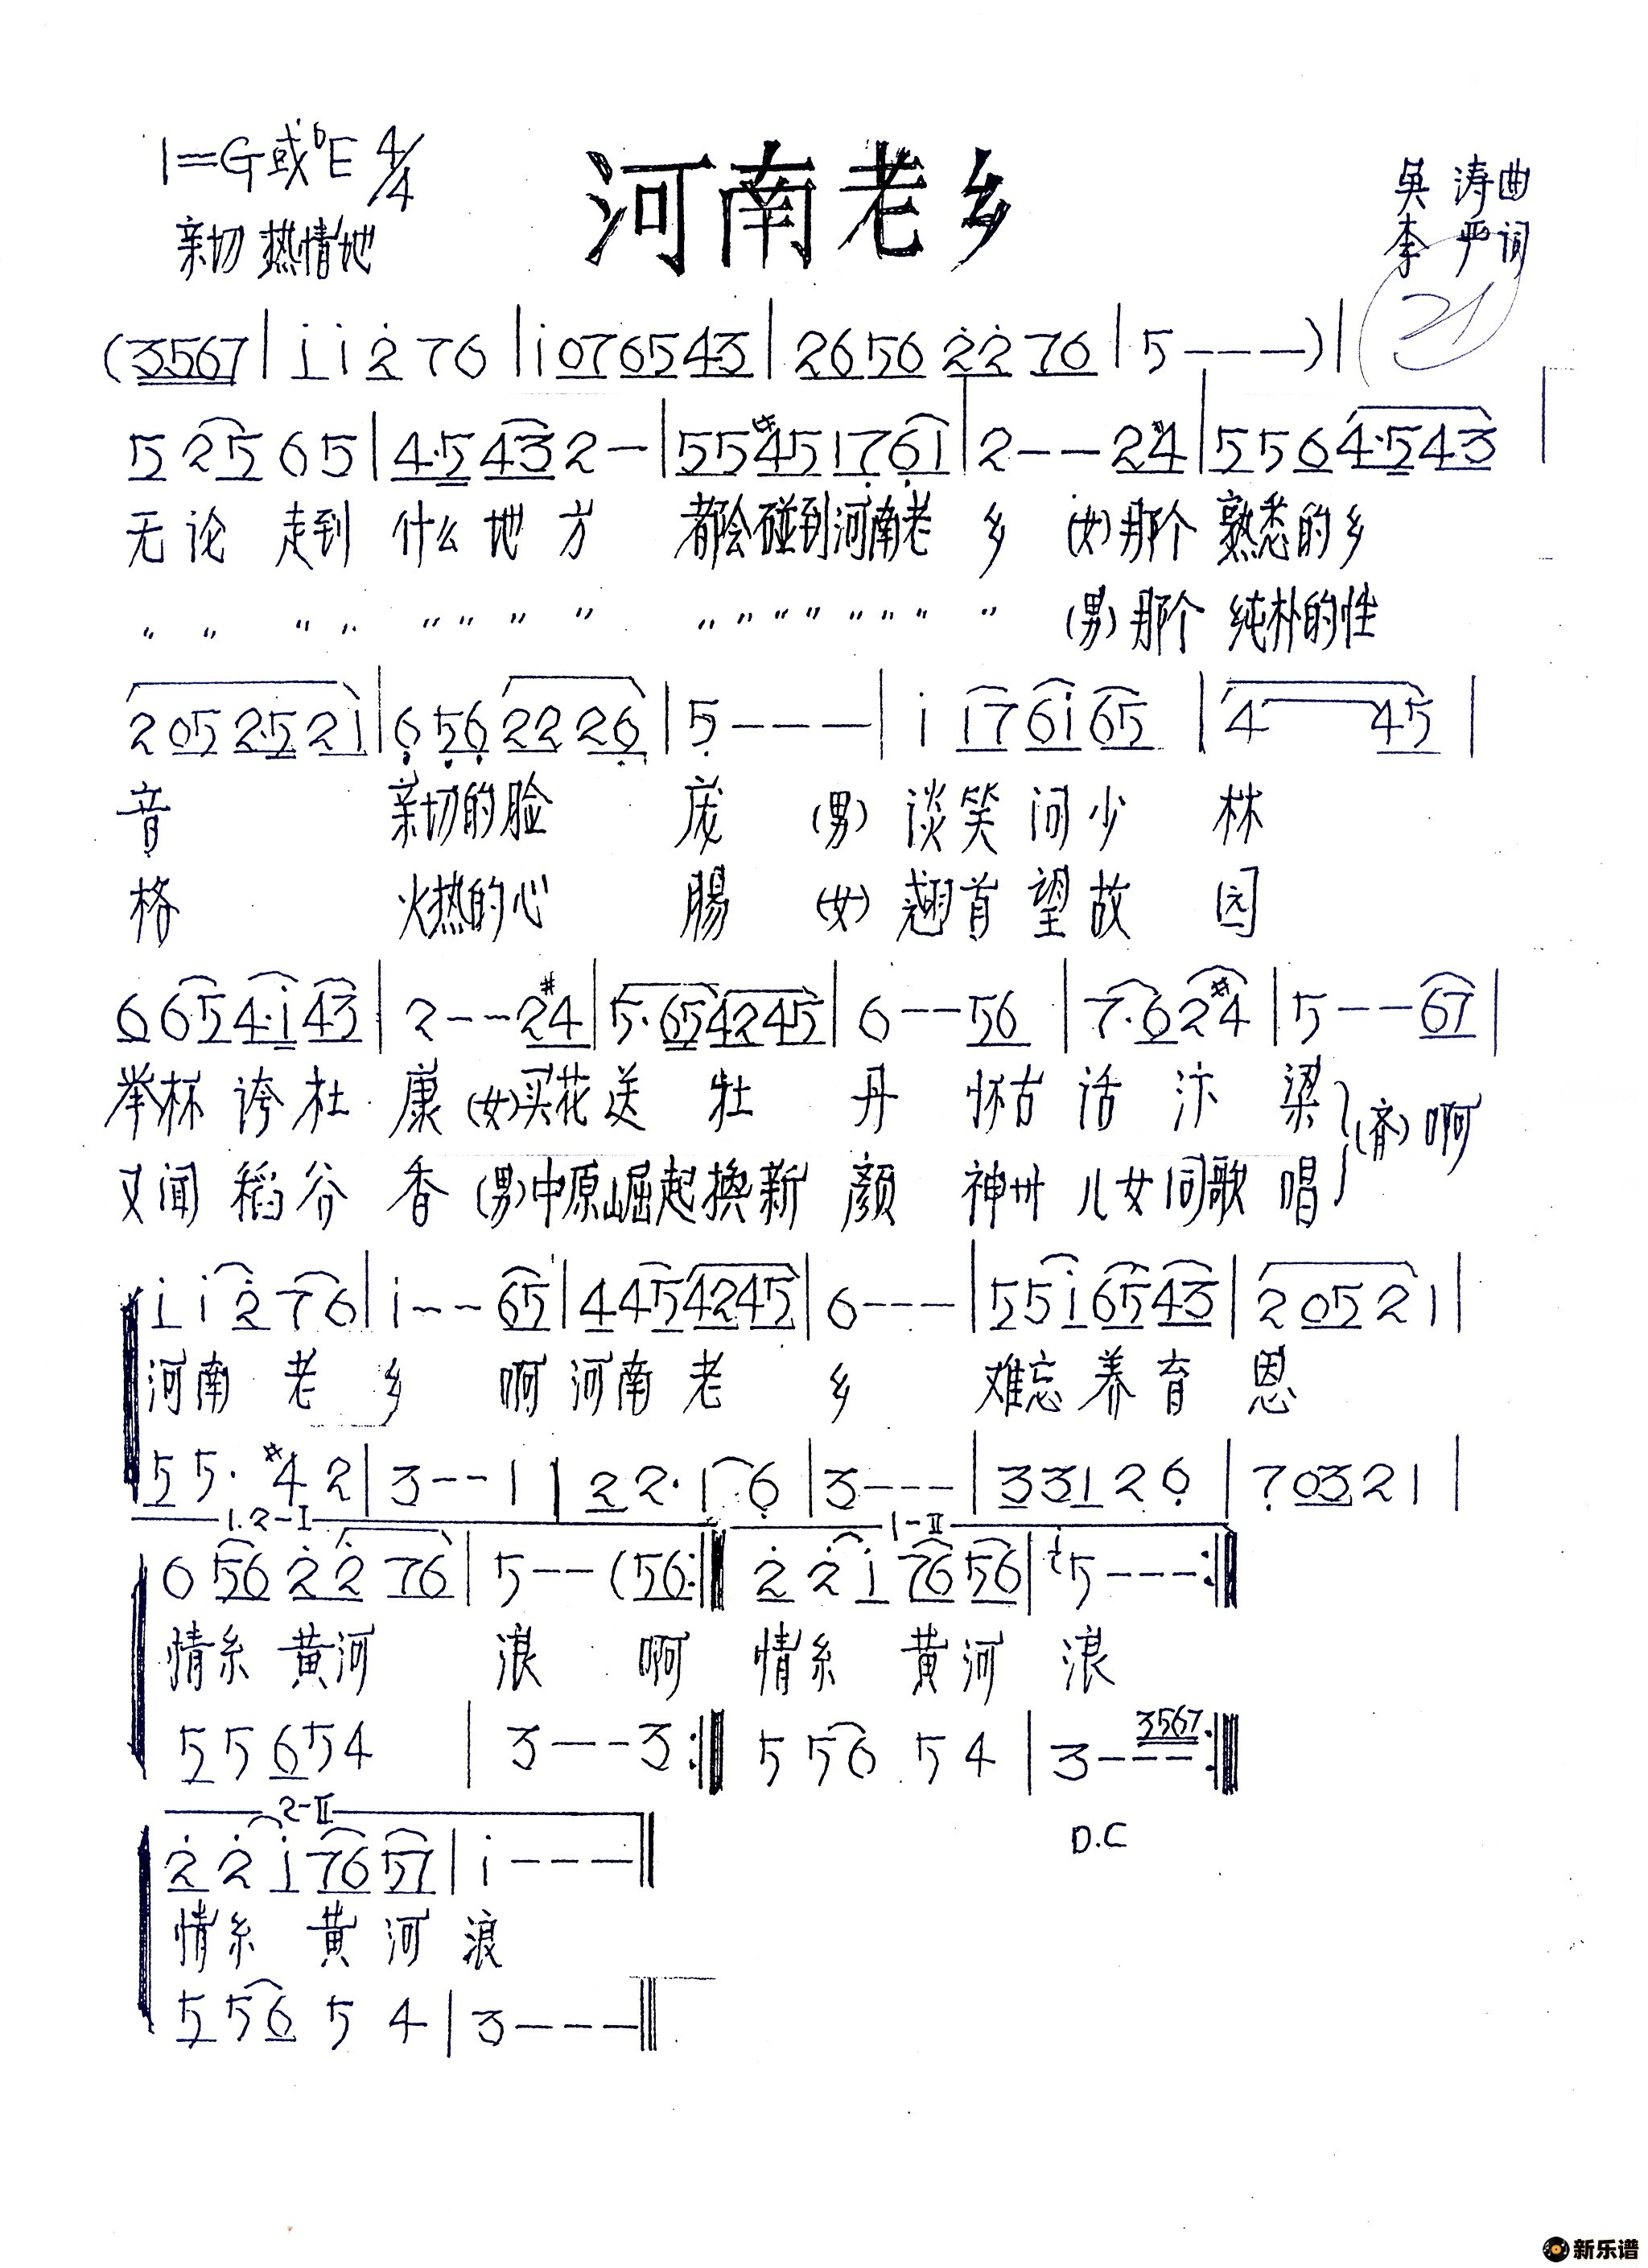 1=G或♭E 4/4
河南老乡
吴涛曲
李严词
亲切 热情地
21
(3567 | i i 2̇ 7 6 | i 07 65 43 | 26 56 2̇2̇ 76 | 5 - - - ) |
5 2 5 6 5 | 4·5 43 2 - | 55 #45 17 61 | 2 - - 2#4 | 5 5 6 4·5 43
无论 走到 什么 地 方 都会碰到河南老 乡 (女)那个 熟悉的乡
〃 〃 〃 〃 〃 〃 〃 〃 〃 〃 〃 〃 〃 〃 〃 〃 (男)那个 纯朴的性
2 05 2·5 21 | 6 56 22 26 | 5 - - - | i i7 6i 65 | 4 45 |
音 亲切的脸 庞 (男) 谈笑问少 林
格 火热的心 腸 (女) 翘首望故 园
6 65 4·i 43 | 2 - - 2#4 | 5·65 42 45 | 6 - - 56 | 7·6 2#4 | 5 - - 67 |
举杯 誇杜 康 (女)买花送 牡 丹 怀古 话 汴 梁 (齐)啊
又闻 稻谷 香 (男)中原崛起換新 颜 神卅 儿女同歌 唱
i i 2̇ 7 6 | i - - 65 | 4 45 42 45 | 6 - - - | 5 5 i 65 43 | 2 05 2 1 |
河南 老 乡 啊 河南 老 乡 难忘 养 育 恩
5 5· #4 2 | 3 - - 1 | 2 2· 1 6 | 3 - - - | 3 3 1 2 6 | 7 03 2 1 |
1.2-I 1-II
6 56 2̇ 2̇ 76 | 5 - - (56 :‖ 2̇ 2̇ i 76 56 | i5 - - - :‖
情糸 黄河 浪 啊 情糸 黄河 浪
5 5 6 5 4 | 3 - - - 3 :‖ 5 5 6 5 4 | 3 - - - 3567 :‖
2-II
D.C
2̇ 2̇ i 76 57 | i - - - ‖
情糸 黄 河 浪
5 5 6 5 4 | 3 - - - ‖
新乐谱